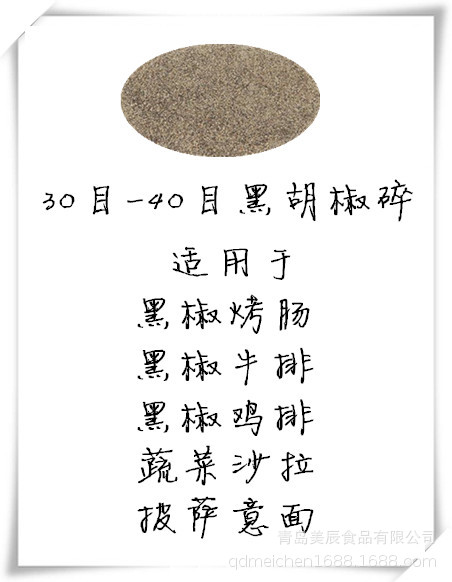 30目-40目黑胡椒碎
适用于
黑椒烤肠
黑椒牛排
黑椒鸡排
蔬菜沙拉
披萨意面
青岛美辰食品有限公司
qdmeichen1688.1688.com